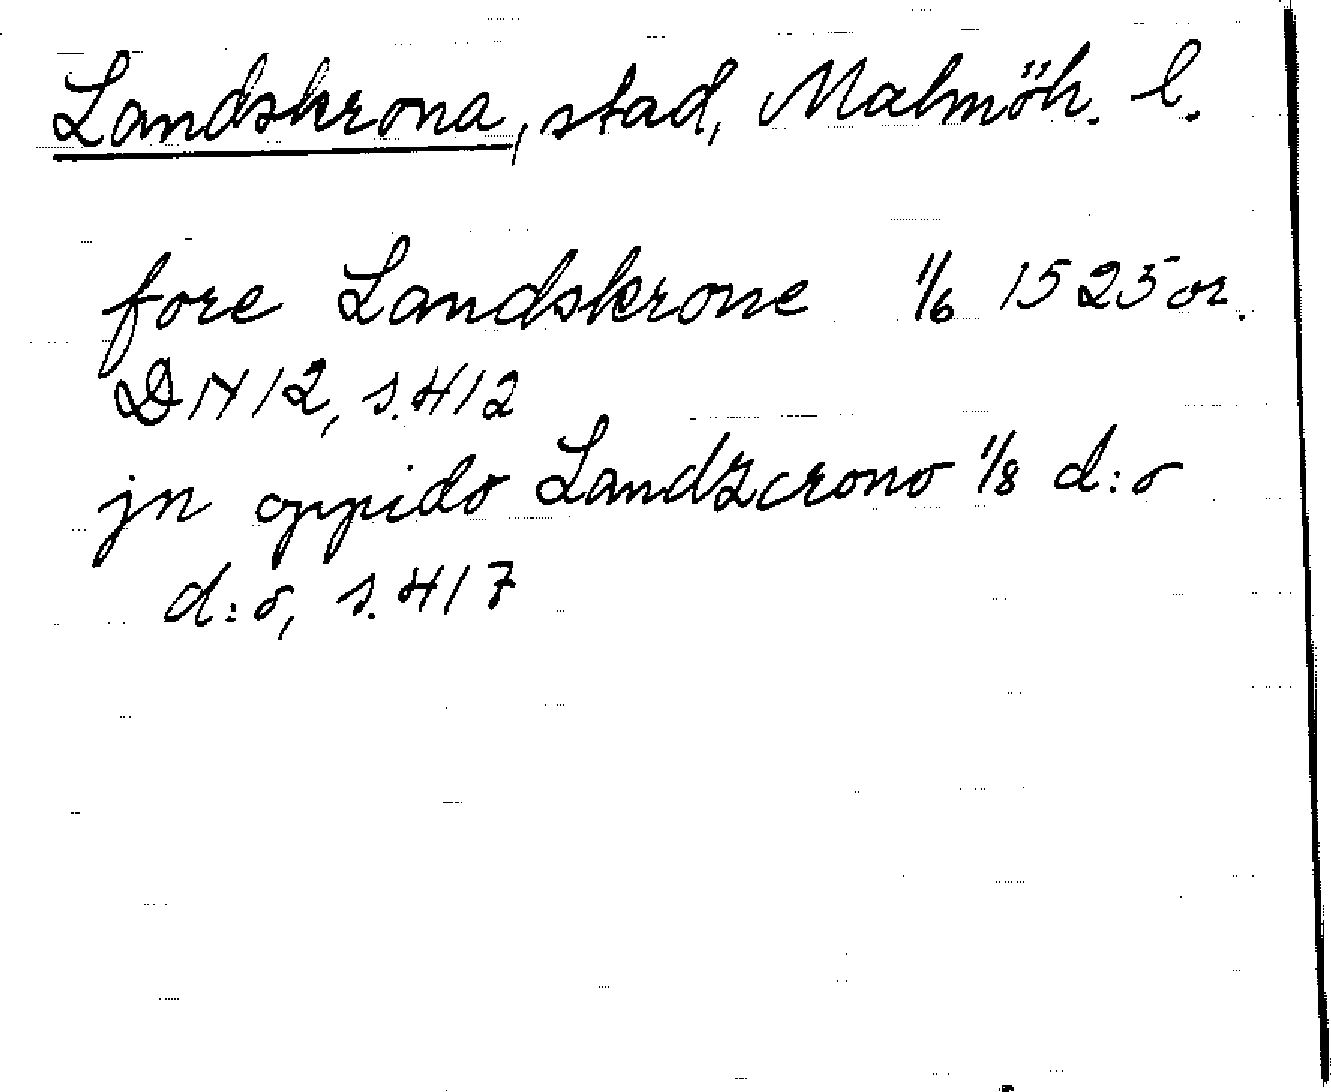 Landskrona, stad, Malmöh. l.
fore Landskrone 1/6 1525 or.
DN 12, s. 412
jn oppido Landzcrono 1/8 d:o
d:o, s. 417